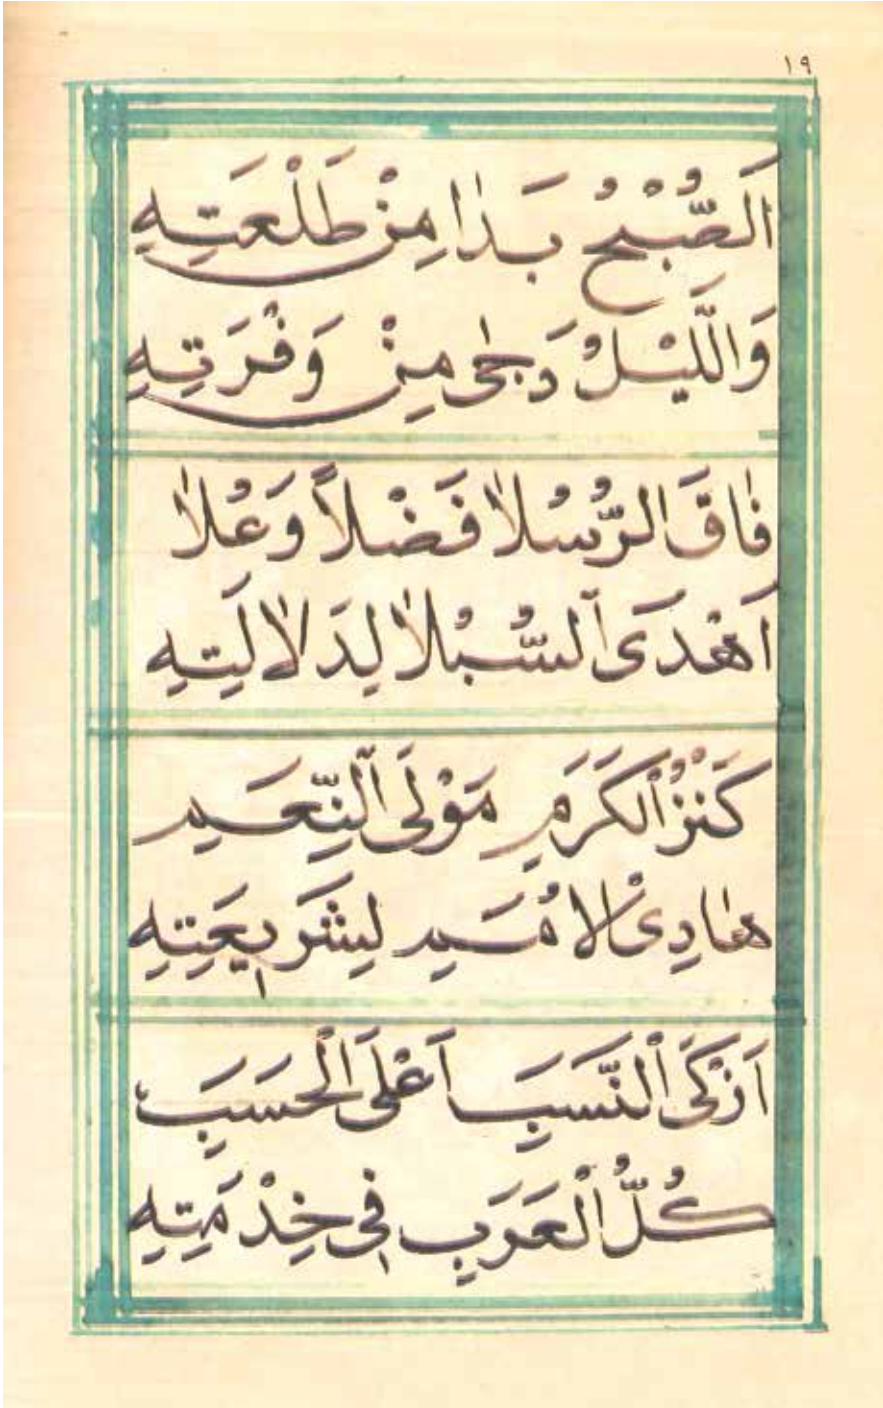 ١٩
اَلصُّبْحُ بَدٰا مِنْ طَلْعَتِهِ
وَالَّليْلُ دَجٰى مِنْ وَفْرَتِهِ
فٰاقَ الرُّسُلاٰ فَضْلاً وَعُلاٰ
اَهْدَى السُّبْلاٰ لِدَلاٰلَتِهِ
كَنْزُ الْكَرَمِ مَوْلَى النِّعَمِ
هٰادِىْ الْاُمَمِ لِشَرِيعَتِهِ
اَزْكَى النَّسَبِ اَعْلَى الْحَسَبِ
كُلُّ الْعَرَبِ فِى خِدْمَتِهِ